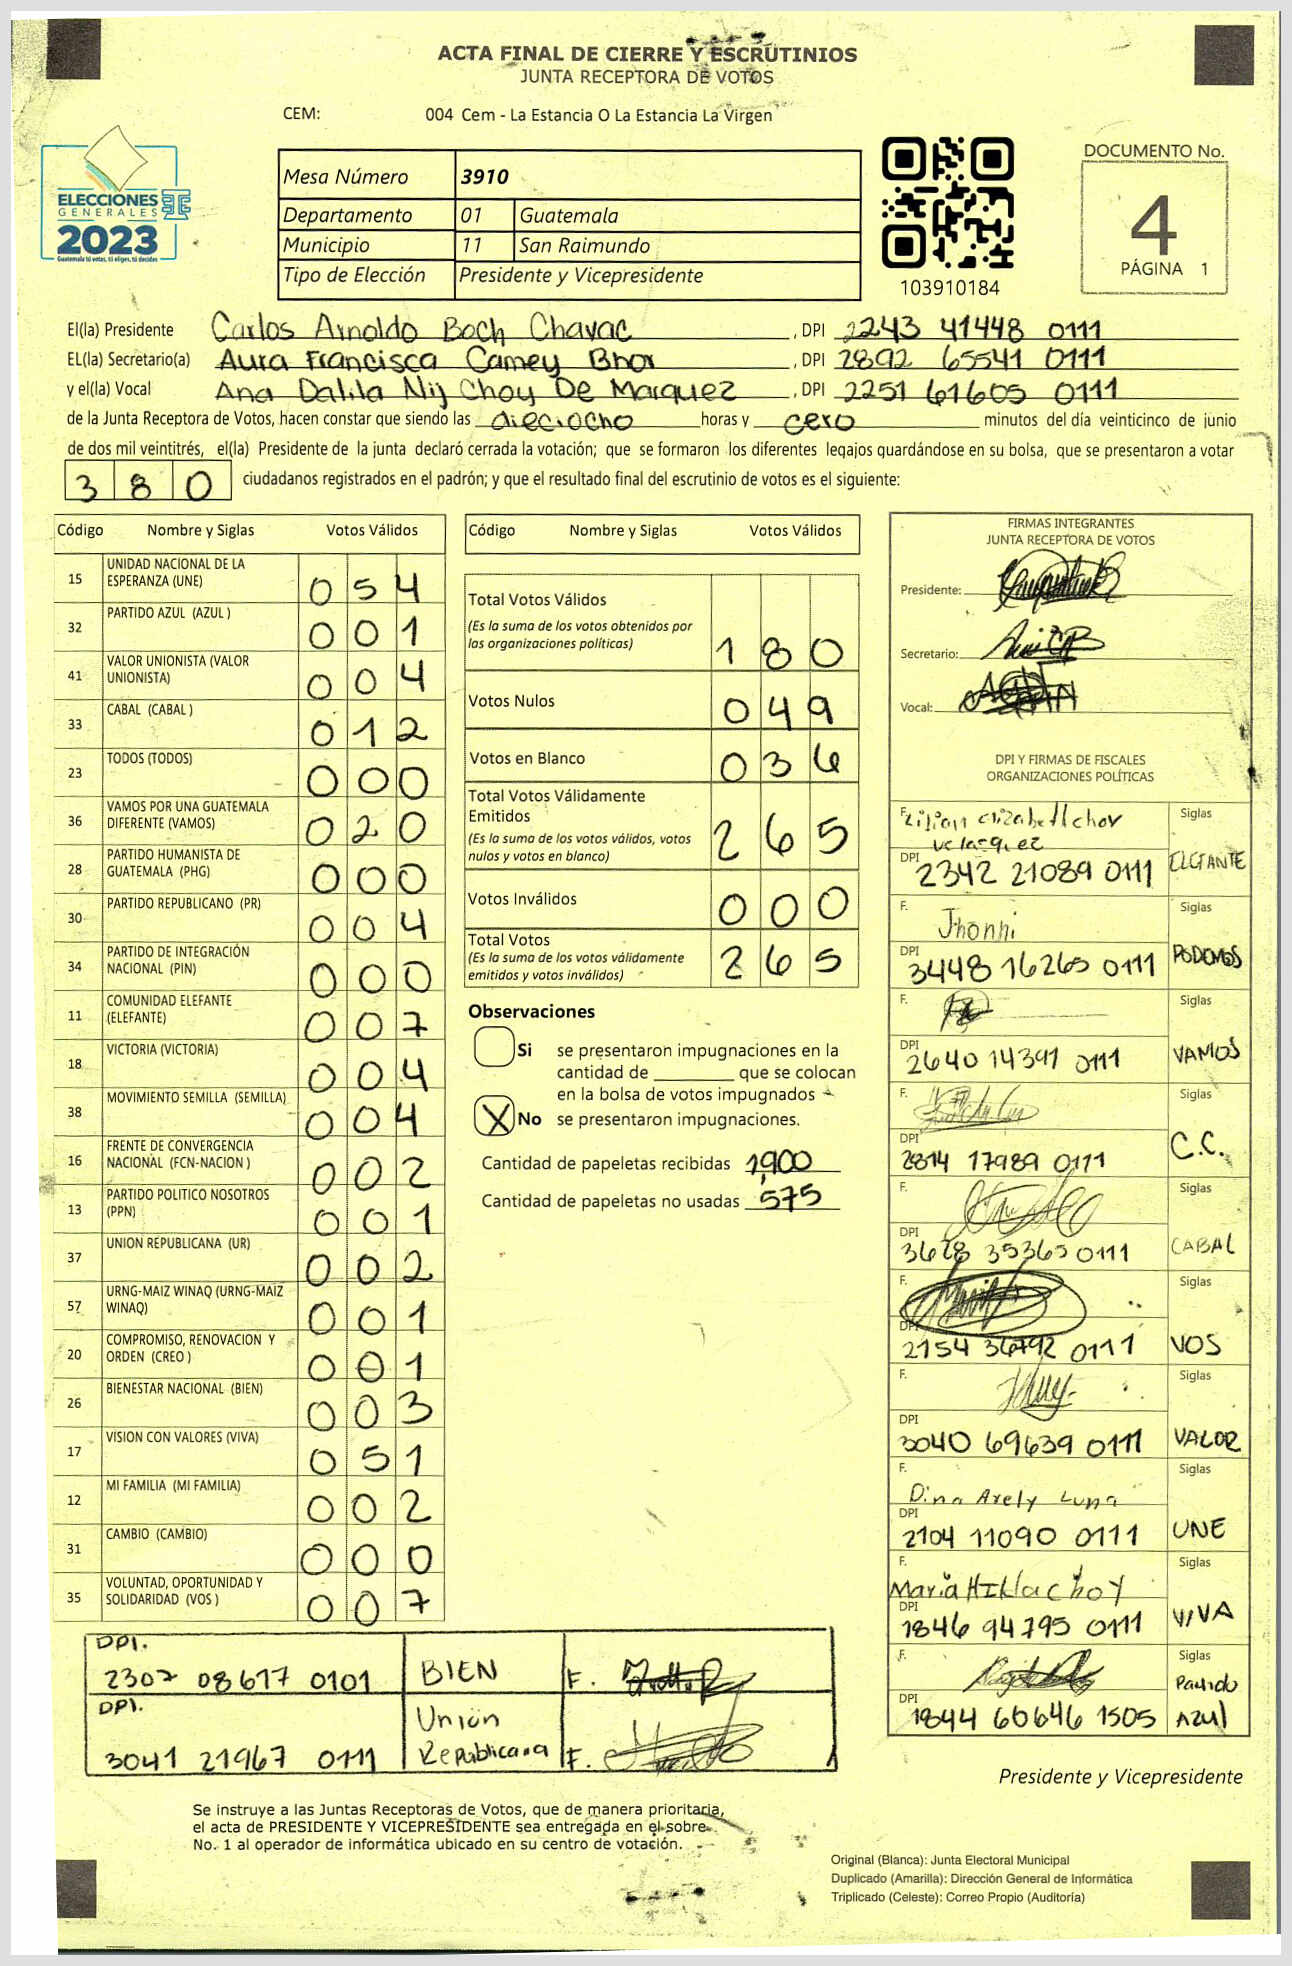 ACTA FINAL DE CIERRE Y ESCRUTINIOS
JUNTA RECEPTORA DE VOTOS
CEM: 004 Cem - La Estancia O La Estancia La Virgen
ELECCIONES
GENERALES
2023
Guatemala tú votas, tú eliges, tú decides
Mesa Número 3910
Departamento 01 Guatemala
Municipio 11 San Raimundo
Tipo de Elección Presidente y Vicepresidente
103910184
DOCUMENTO No.
4
PÁGINA 1
El(la) Presidente Carlos Arnoldo Boch Chavac, DPI 2243 41448 0111
EL(la) Secretario(a) Aura Francisca Camey Bhor, DPI 2892 65541 0111
y el(la) Vocal Ana Dalila Nij Choy De Marquez, DPI 2251 61605 0111
de la Junta Receptora de Votos, hacen constar que siendo las dieciocho horas y cero minutos del día veinticinco de junio
de dos mil veintitrés, el(la) Presidente de la junta declaró cerrada la votación; que se formaron los diferentes legajos guardándose en su bolsa, que se presentaron a votar
380 ciudadanos registrados en el padrón; y que el resultado final del escrutinio de votos es el siguiente:
Código Nombre y Siglas Votos Válidos
15 UNIDAD NACIONAL DE LA ESPERANZA (UNE) 054
32 PARTIDO AZUL (AZUL ) 001
41 VALOR UNIONISTA (VALOR UNIONISTA) 004
33 CABAL (CABAL ) 012
23 TODOS (TODOS) 000
36 VAMOS POR UNA GUATEMALA DIFERENTE (VAMOS) 020
28 PARTIDO HUMANISTA DE GUATEMALA (PHG) 000
30 PARTIDO REPUBLICANO (PR) 004
34 PARTIDO DE INTEGRACIÓN NACIONAL (PIN) 000
11 COMUNIDAD ELEFANTE (ELEFANTE) 007
18 VICTORIA (VICTORIA) 004
38 MOVIMIENTO SEMILLA (SEMILLA) 004
16 FRENTE DE CONVERGENCIA NACIONAL (FCN-NACION ) 002
13 PARTIDO POLITICO NOSOTROS (PPN) 001
37 UNION REPUBLICANA (UR) 002
57 URNG-MAIZ WINAQ (URNG-MAIZ WINAQ) 001
20 COMPROMISO, RENOVACION Y ORDEN (CREO ) 001
26 BIENESTAR NACIONAL (BIEN) 003
17 VISION CON VALORES (VIVA) 051
12 MI FAMILIA (MI FAMILIA) 002
31 CAMBIO (CAMBIO) 000
35 VOLUNTAD, OPORTUNIDAD Y SOLIDARIDAD (VOS ) 007
Código Nombre y Siglas Votos Válidos
Total Votos Válidos 180
(Es la suma de los votos obtenidos por
las organizaciones políticas)
Votos Nulos 049
Votos en Blanco 036
Total Votos Válidamente
Emitidos 265
(Es la suma de los votos válidos, votos
nulos y votos en blanco)
Votos Inválidos 000
Total Votos 265
(Es la suma de los votos válidamente
emitidos y votos inválidos)
Observaciones
Si se presentaron impugnaciones en la
cantidad de ______ que se colocan
en la bolsa de votos impugnados
X No se presentaron impugnaciones.
Cantidad de papeletas recibidas 1,900
Cantidad de papeletas no usadas 575
FIRMAS INTEGRANTES
JUNTA RECEPTORA DE VOTOS
Presidente:
Secretario:
Vocal:
DPI Y FIRMAS DE FISCALES
ORGANIZACIONES POLÍTICAS
F. Siglas
DPI 2342 21089 0111
F. Jhonni Siglas
DPI 3448 16265 0111 PODEMOS
F. Siglas
DPI 2640 14391 0111 VAMOS
F. Siglas
DPI 2814 17989 0111 C.C.
F. Siglas
DPI 3628 35365 0111 CABAL
F. Siglas
DPI 2154 36792 0111 VOS
F. Siglas
DPI 3040 69639 0111 VALOR
F. Dina Arely Luna Siglas
DPI 2104 11090 0111 UNE
F. Maria Hilda Choy Siglas
DPI 1846 94795 0111 VIVA
F. Siglas
DPI 1844 60646 1505 Partido Azul
DPI. 2302 08677 0101 BIEN F.
DPI. 3041 21967 0111 Unión Republicana F.
Presidente y Vicepresidente
Se instruye a las Juntas Receptoras de Votos, que de manera prioritaria,
el acta de PRESIDENTE Y VICEPRESIDENTE sea entregada en el sobre
No. 1 al operador de informática ubicado en su centro de votación.
Original (Blanca): Junta Electoral Municipal
Duplicado (Amarilla): Dirección General de Informática
Triplicado (Celeste): Correo Propio (Auditoría)